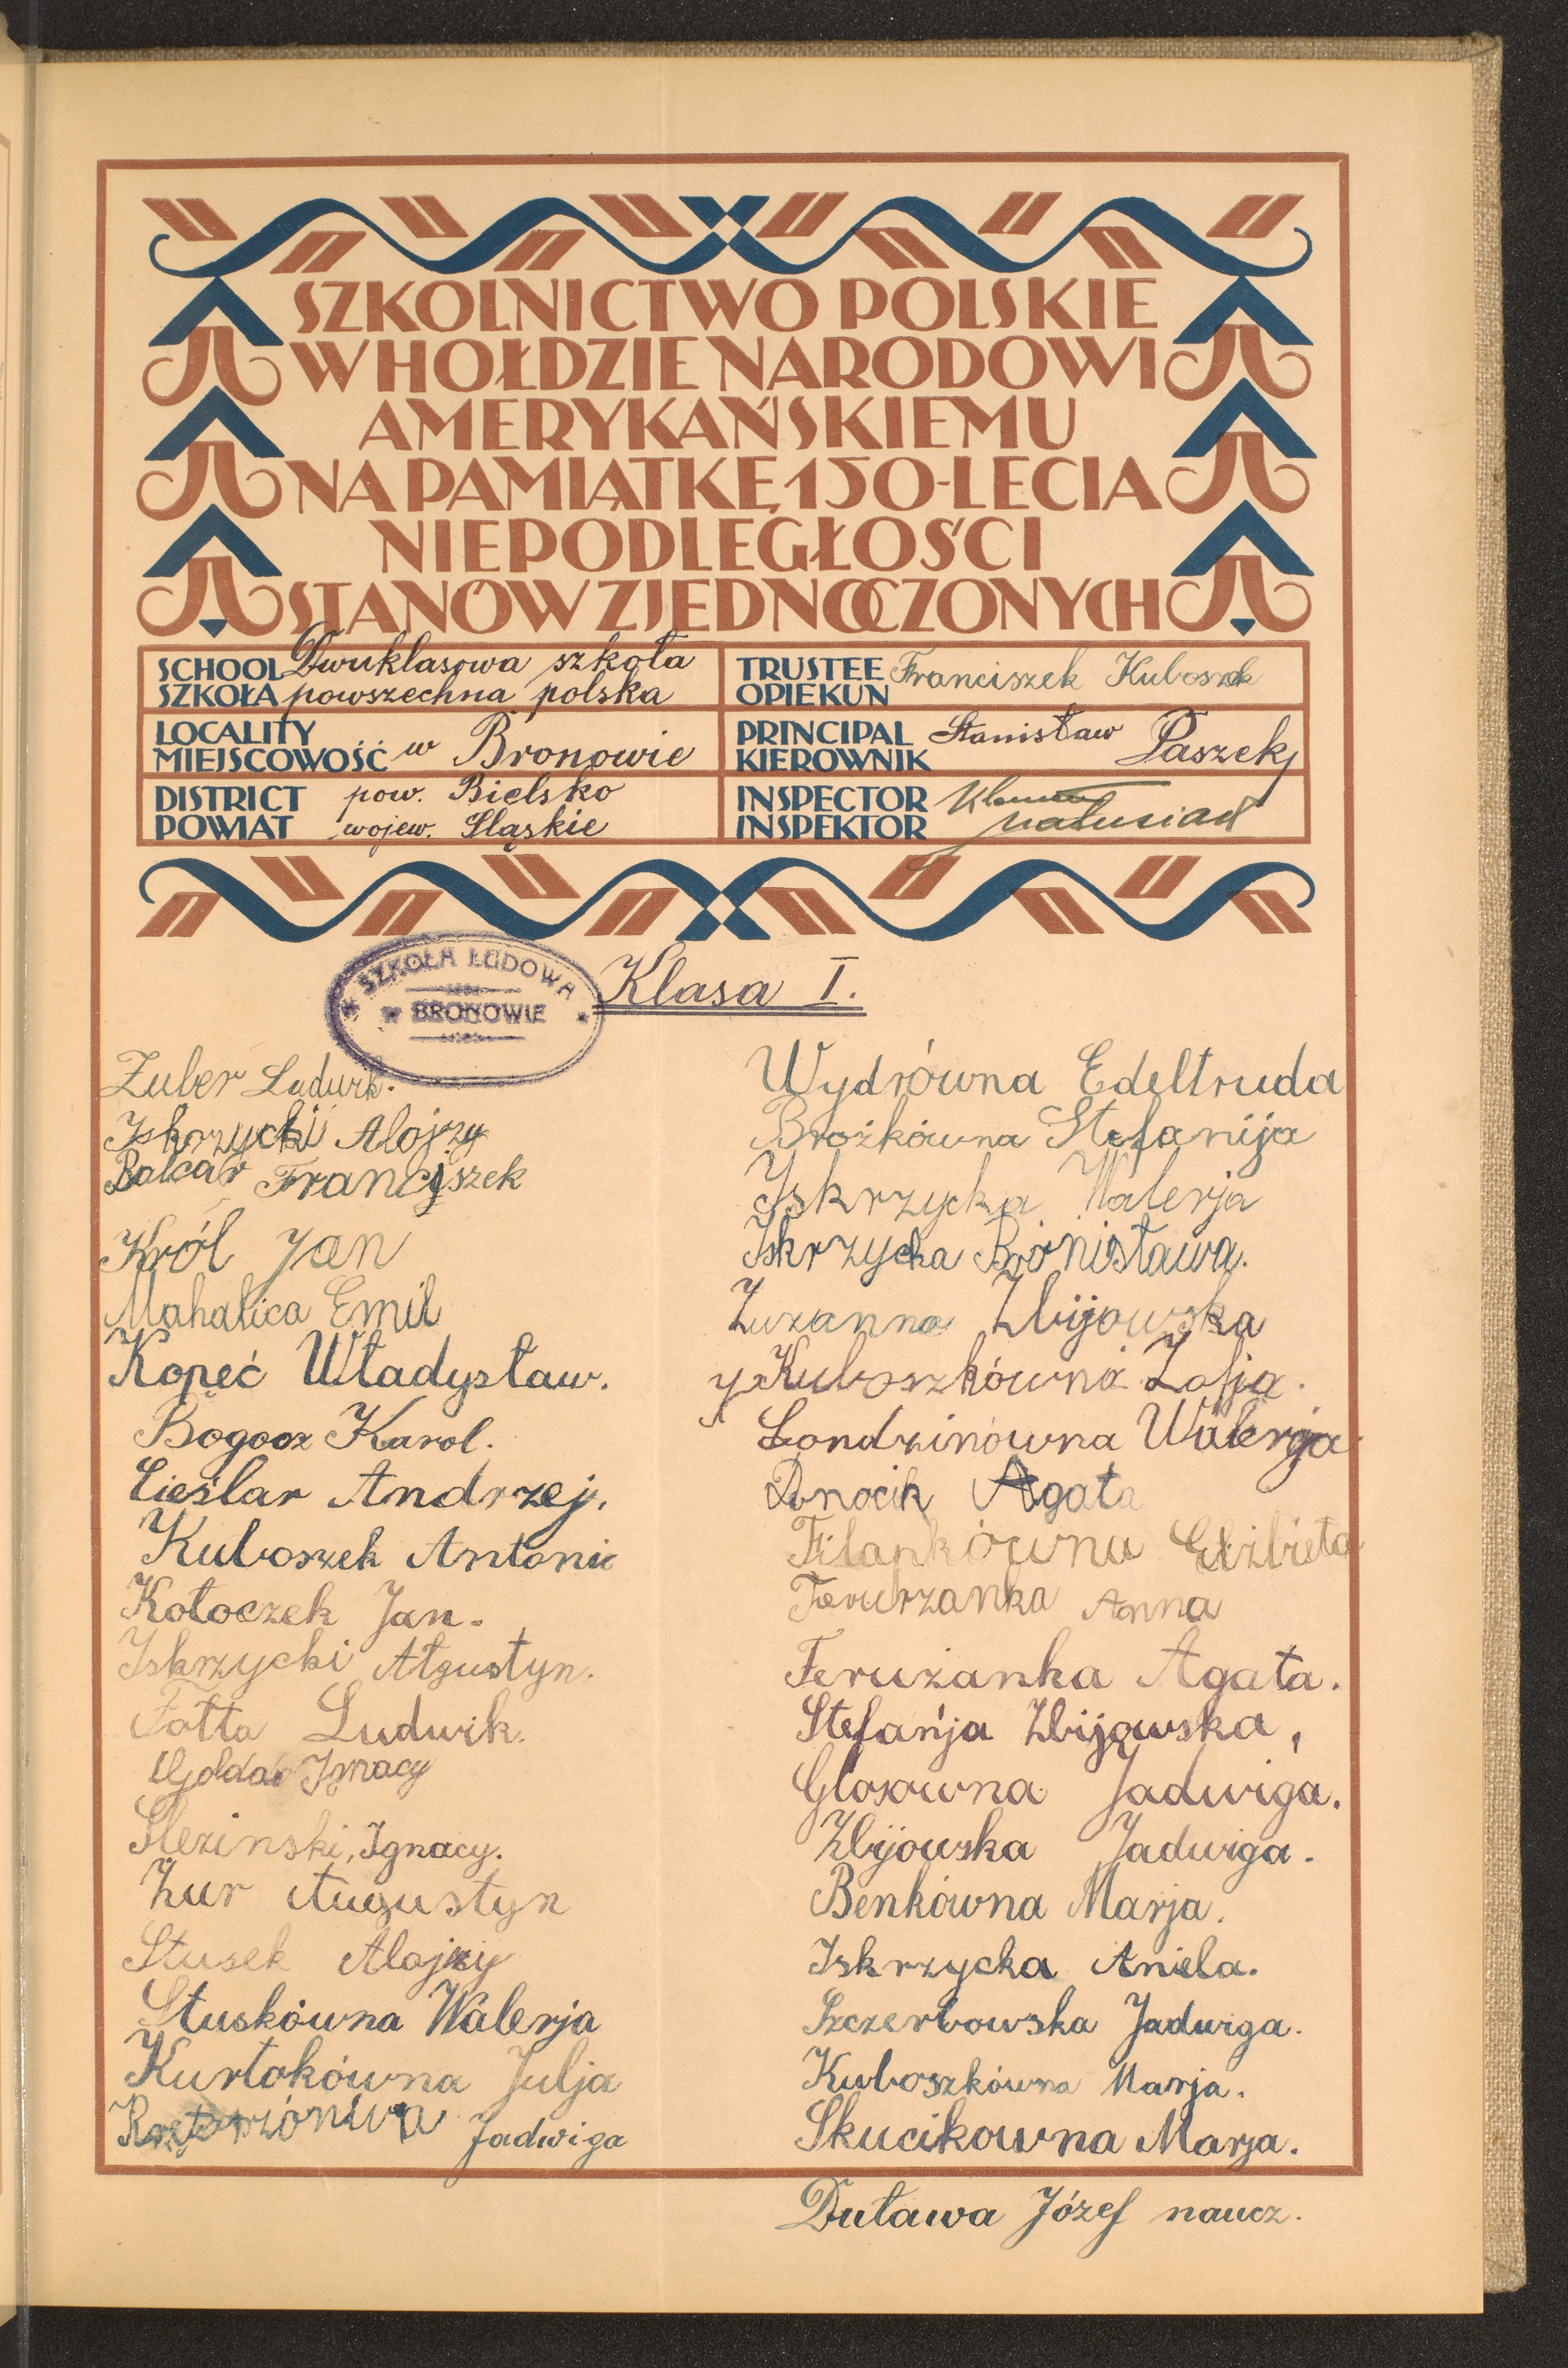 SZKOLNICTWO POLSKIE
W HOŁDZIE NARODOWI
AMERYKAŃSKIEMU
NA PAMIĄTKĘ 150-LECIA
NIEPODLEGŁOŚCI
STANÓW ZJEDNOCZONYCH
SCHOOL Dwuklasowa szkoła
SZKOŁA powszechna polska
TRUSTEE Franciszek Kuboszek
OPIEKUN
LOCALITY
MIEJSCOWOŚĆ w Bronowie
PRINCIPAL Stanisław Paszek
KIEROWNIK
DISTRICT pow. Bielsko
POWIAT wojew. Śląskie
INSPECTOR
INSPEKTOR Matusiak
SZKOŁA LUDOWA
w BRONOWIE
Klasa I.
Zuber Ludwik.
Iskrzycki Alojzy
Balcar Franciszek
Król Jan
Mahalica Emil
Kopeć Władysław.
Bogocz Karol.
Cieślar Andrzej.
Kuboszek Antonie
Kołoczek Jan.
Iskrzycki Augustyn.
Fołta Ludwik.
Goldas Ignacy
Ślezinski, Ignacy.
Żur Augustyn
Stusek Alojzy
Stuskówna Walerja
Kurtokówna Julja
Jadwiga
Wydrówna Edeltruda
Brożkówna Stefanija
Iskrzycka Walerja
Iskrzycka Bronisława.
Zuzanna Zbijowska
Kuboszkówna Zofja.
Londzinówna Walerja.
Donocik Agata
Filapkówna Elżbieta
Ferurzanka Anna
Ferużanka Agata.
Stefańja Zbijowska,
Glosówna Jadwiga.
Zbijowska Jadwiga.
Benkówna Marja.
Iskrzycka Aniela.
Szczerbowska Jadwiga.
Kuboszkówna Marja.
Skucikowna Marja.
Duława Józef naucz.